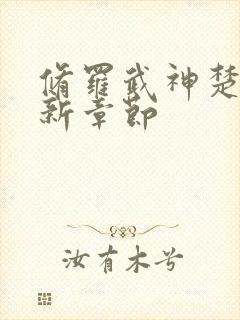 脩羅武神楚
新章節
汝有木兮